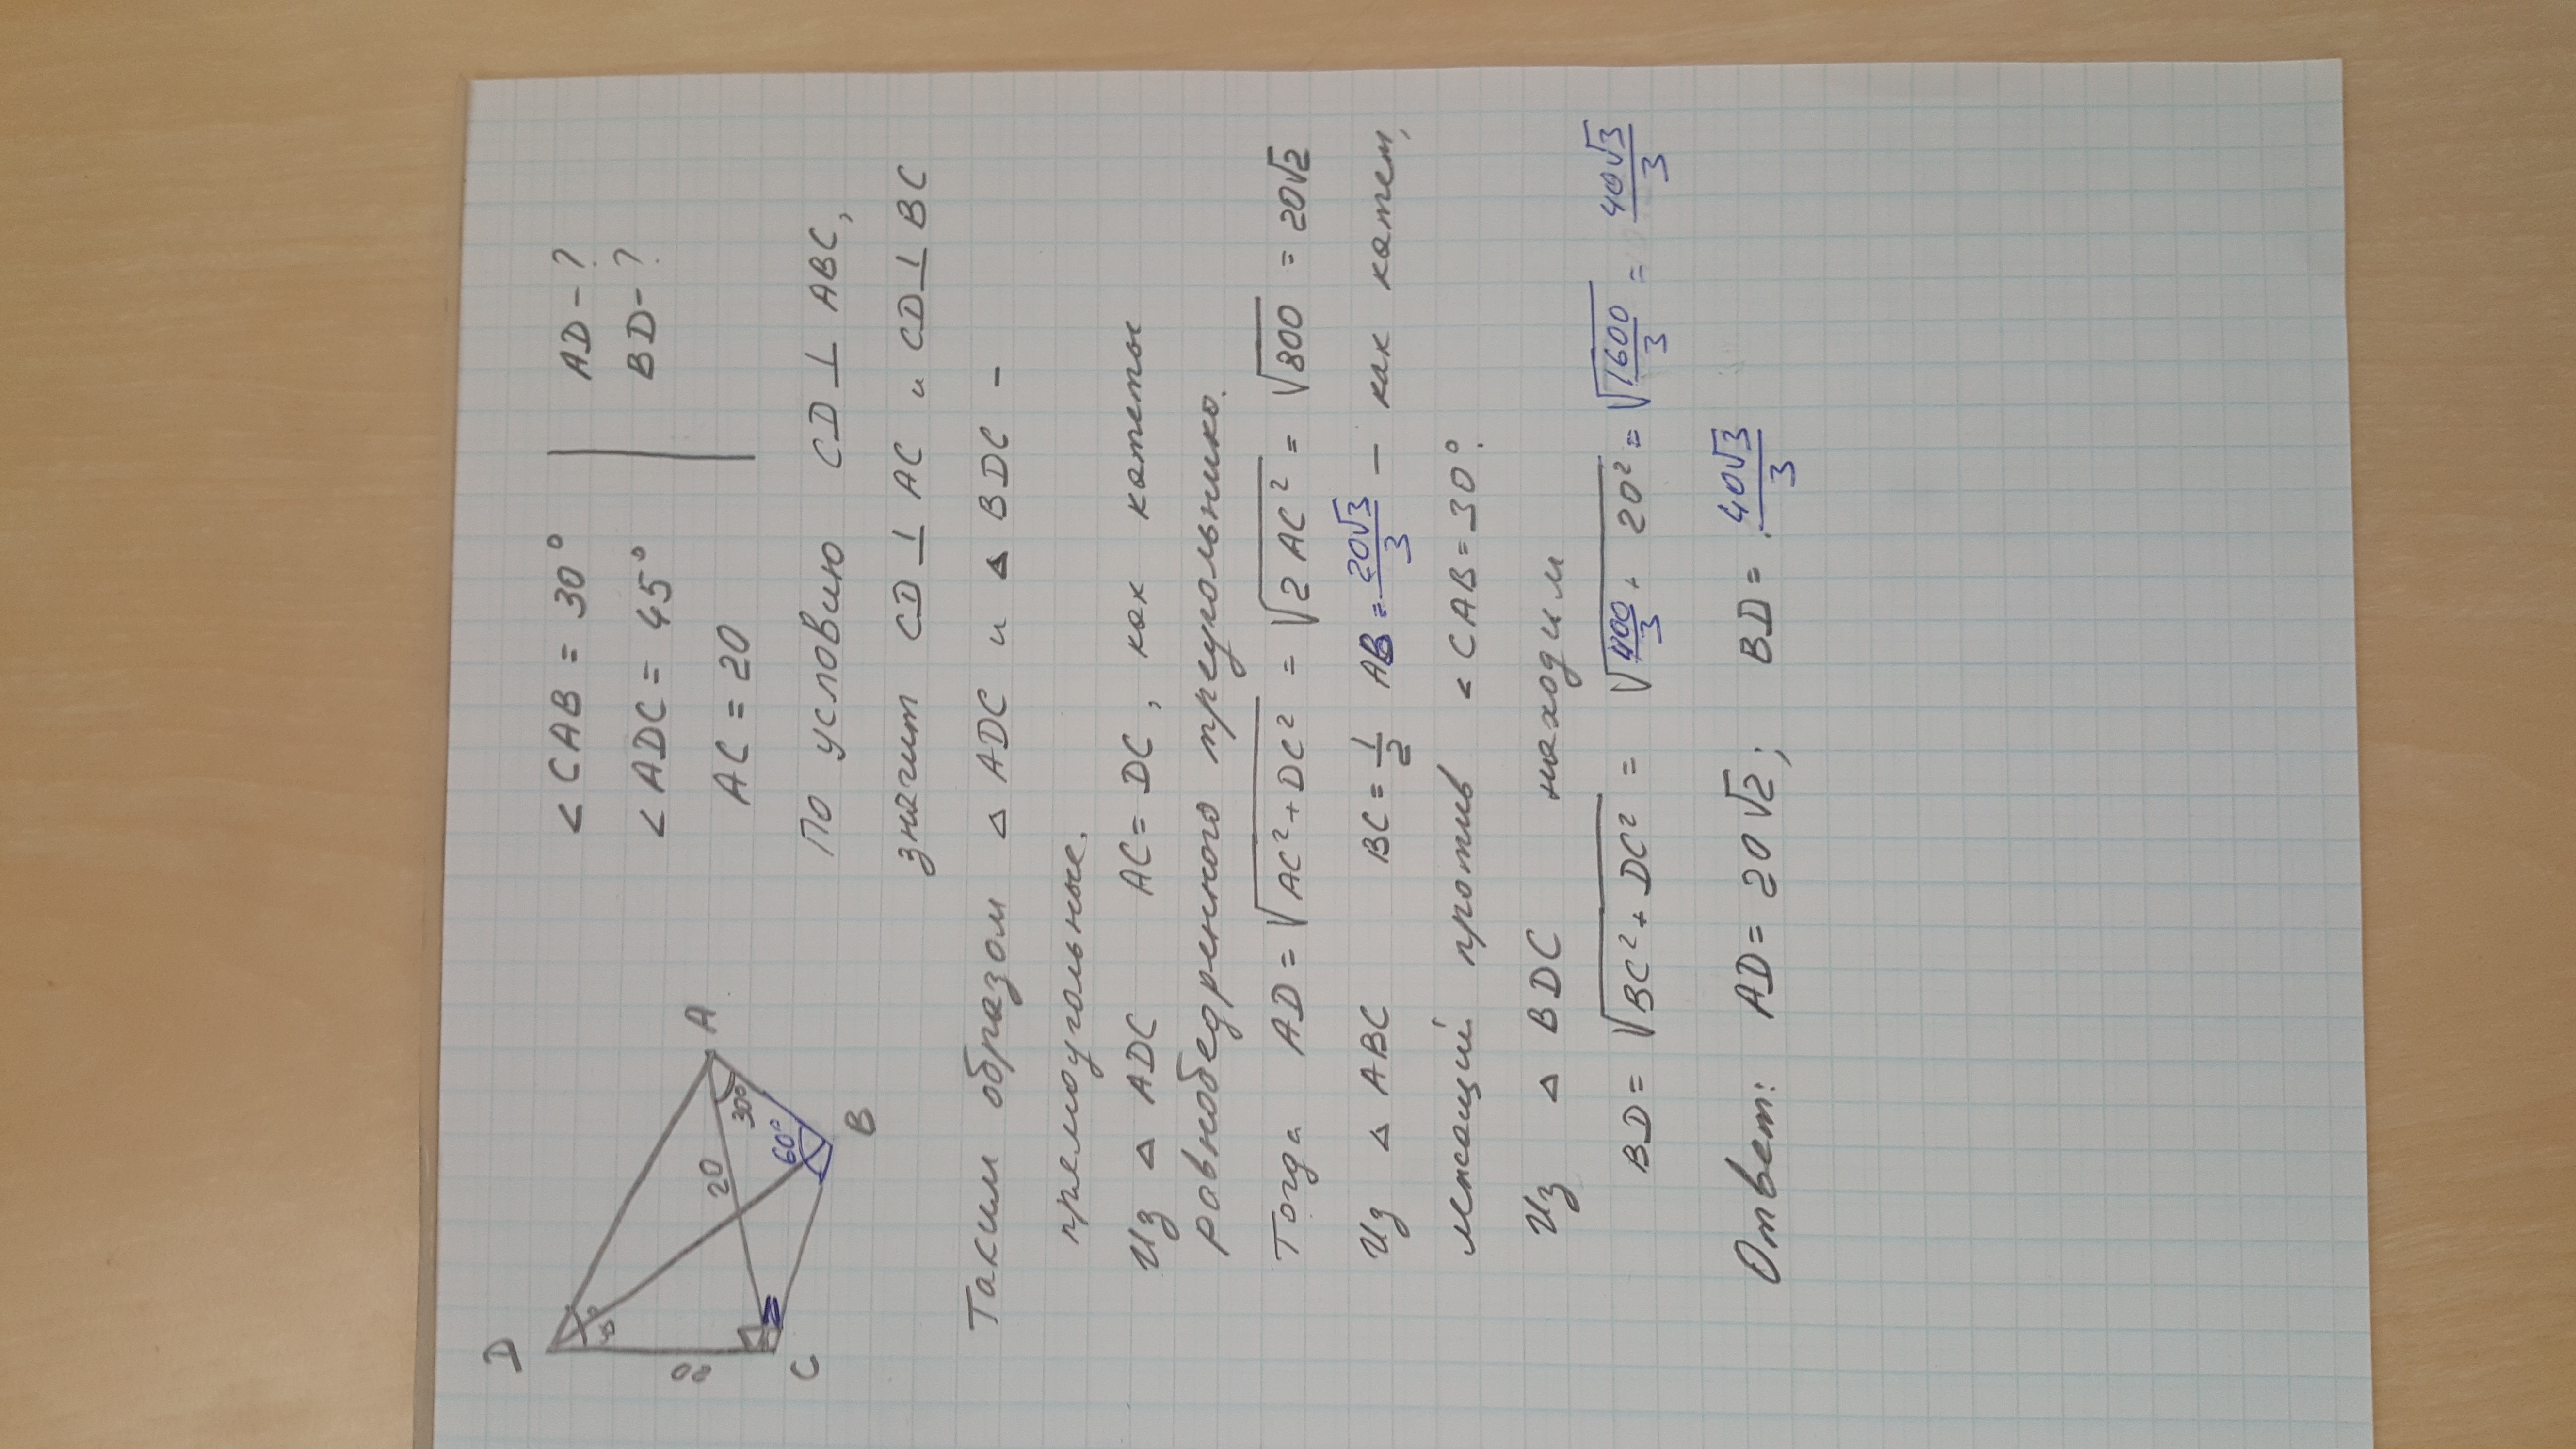 D
20
45°
C
20
A
30°
60°
B
< CAB = 30° | AD - ?
< ADC = 45° | BD - ?
AC = 20
По условию CD ⊥ ABC,
значит CD ⊥ AC и CD ⊥ BC
Таким образом △ ADC и △ BDC -
прямоугольные.
Из △ ADC AC = DC, как катеты
равнобедренного треугольника.
Тогда AD = √(AC² + DC²) = √(2 AC²) = √800 = 20√2
Из △ ABC BC = 1/2 AB = 20√3/3 — как катет,
лежащий против < CAB = 30°.
Из △ BDC находим
BD = √(BC² + DC²) = √(400/3 + 20²) = √(1600/3) = 40√3/3
Ответ: AD = 20√2; BD = 40√3/3